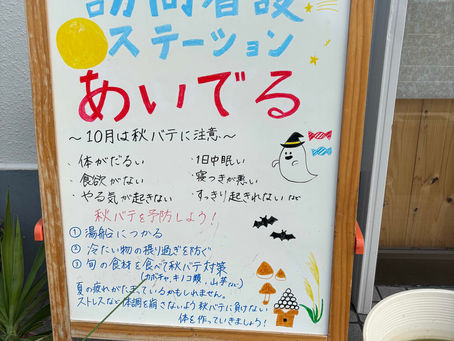 訪問看護
ステーション
あいでる
～10月は秋バテに注意～
・体がだるい ・1日中眠い
・食欲がない ・寝つきが悪い
・やる気が起きない ・すっきり起きれない など
秋バテを予防しよう！
①湯船につかる
②冷たい物の摂り過ぎを防ぐ
③旬の食材を食べて秋バテ対策
(カボチャ、キノコ類、山芋など)
夏の疲れがたまっているかもしれません。
ストレスなど体調を崩さないよう秋バテに負けない
体を作っていきましょう！